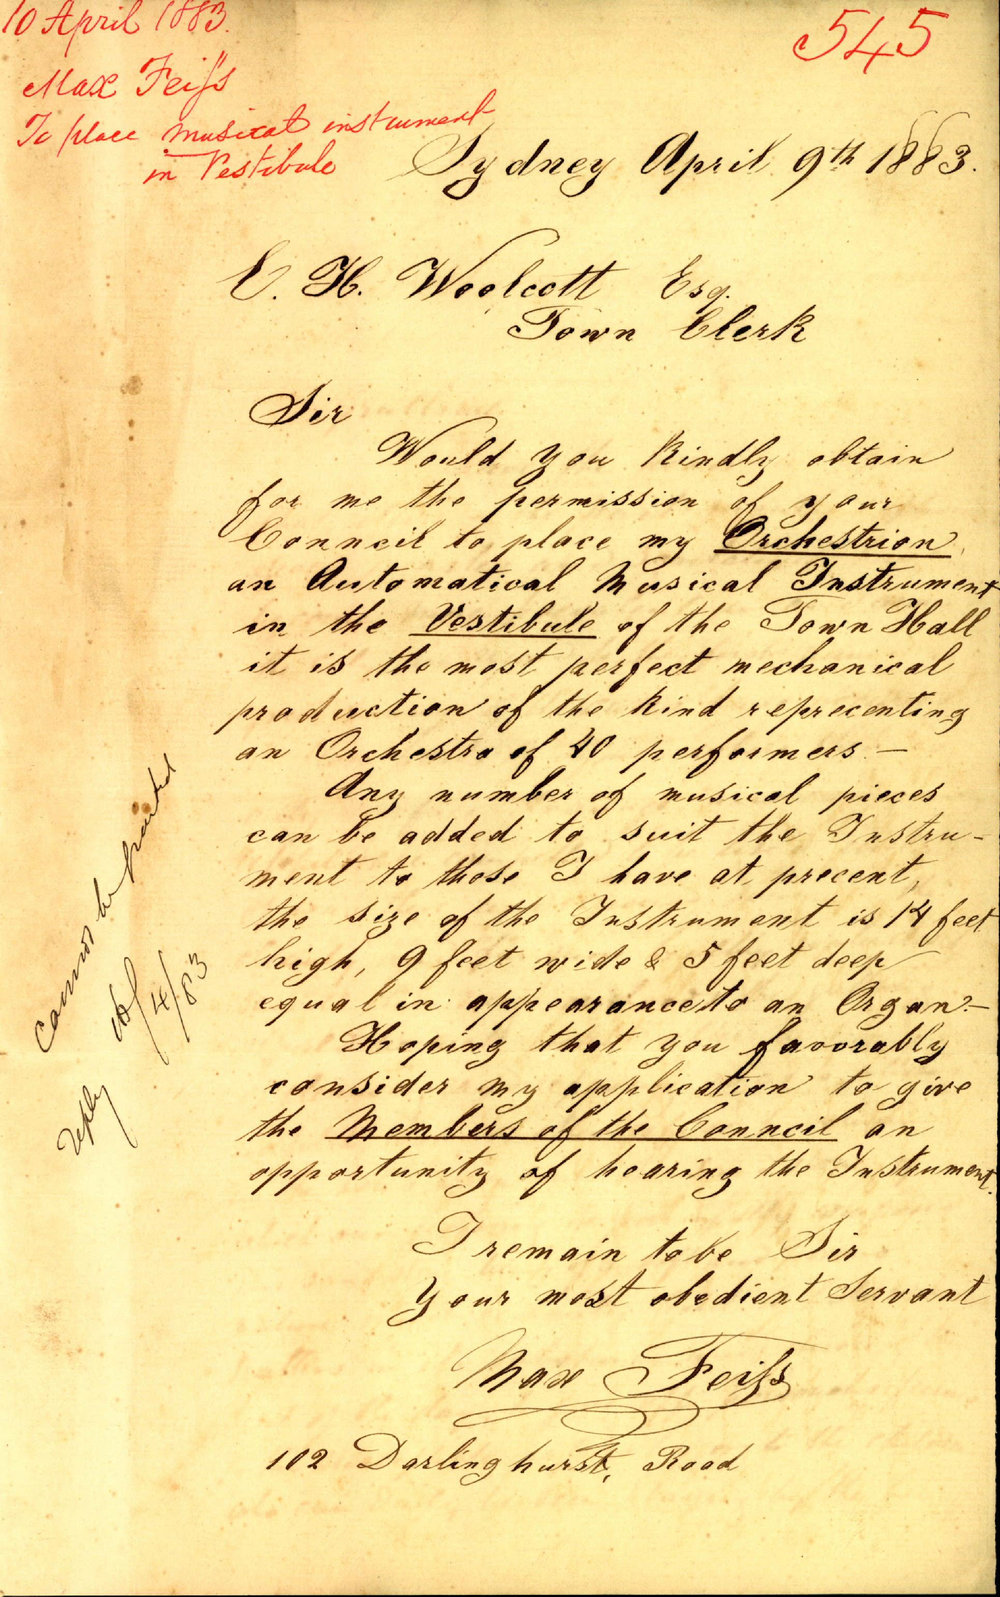 10 April 1883.
545
Max Feiſs
To place musical instrument
in Vestibule
Sydney April 9th 1883.
E. H. Woolcott Esq.
Town Clerk
Sir
Would you kindly obtain
for me the permission of your
Council to place my Orchestrion,
an Automatical Musical Instrument
in the Vestibule of the Town Hall
it is the most perfect mechanical
production of the kind reprecenting
an Orchestra of 40 performers —
Any number of musical pieces
can be added to suit the Instru-
ment to those I have at precent,
the size of the Instrument is 14 feet
high, 9 feet wide & 5 feet deep
equal in appearance to an Organ. —
Hoping that you favorably
consider my application to give
the Members of the Council an
opportunity of hearing the Instrument.
I remain to be Sir
Your most obedient Servant
Max Feiſs
102 Darlinghurst, Road
Cannot be granted
/4/83
reply